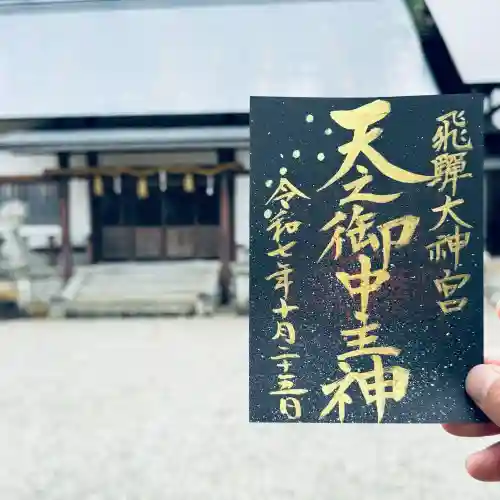 飛騨大神宮
天之御中主神
令和七年十月二十三日